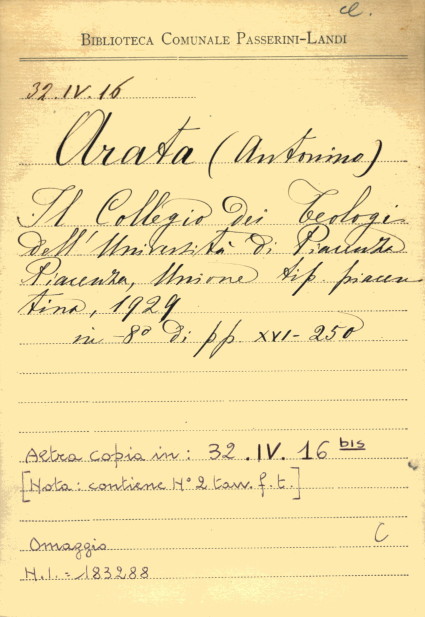 cl.
BIBLIOTECA COMUNALE PASSERINI-LANDI
32.IV.16
Arata (Antonino)
Il Collegio dei Teologi
dell'Università di Piacenza
Piacenza, Unione tip. piacen-
tina, 1929
in -8° di pp. XVI-250
Altra copia in: 32.IV.16 bis
[Nota: contiene N° 2 tavv. f.t.]
C
Omaggio
N.I. = 183288